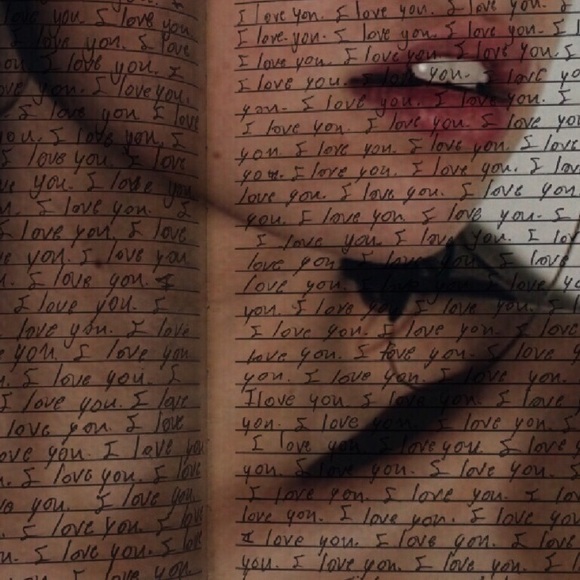 love you. I love you
you. I love
I love you. I
I love you.
love you. I love
you. I love you. I
I love you. I love
you. I love you
love you. I
I love you. I love
you. I love you
I love you. I
I love you. I
love you. I love
you. I love you
I love you. I
I love you. I love
love you. I love
love you. I love you
you. I love you. I love
you. I love you.
I love you. I love
I love you. I love
I love you.
I love you. I love you. I love you.
I love you. I love you. I love you
I love you. I love you. I love
I love you. I love you. I love you
you. I love you. I love you.
I love you. I love you. I love
you. I love you. I love you. I
you. I love you. I love you.
love you. I love you. I love you
you. I love you. I love you. I
I love you. I love you. I love
love you. I love you. I love you
I love you. I love you. I love
you. I love you. I love you.
I love you. I love you. I love
love you. I love you. I love you
you. I love you. I love you.
I love you. I love you. I love
you. I love you. I love you.
I love you. I love you. I love
you. I love you. I love you.
I love you. I love you. I love
love you. I love you. I love you
I love you. I love you. I love
you. I love you. I love you.